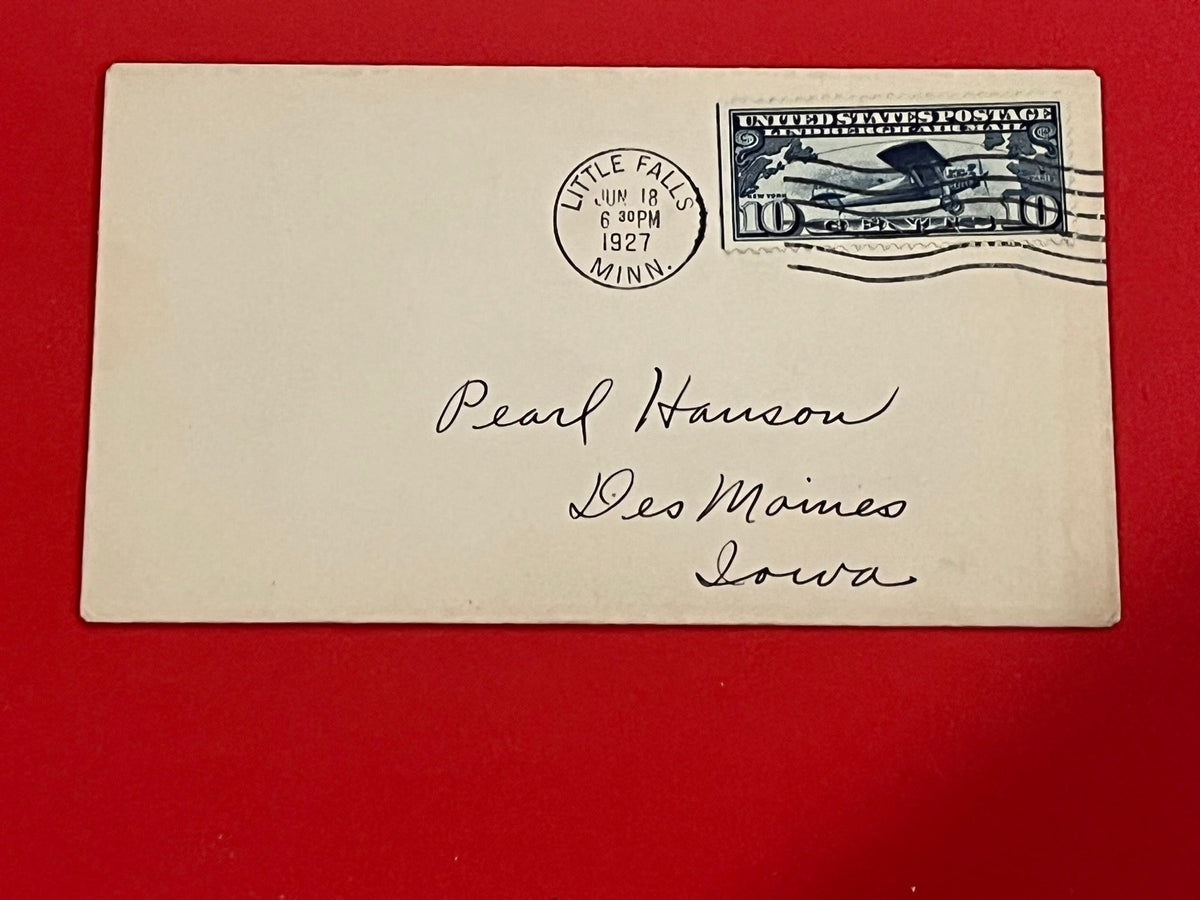 UNITED STATES POSTAGE
LINDBERGH AIR MAIL
NEW YORK
PARIS
10 CENTS 10
LITTLE FALLS
JUN 18
6 30 PM
1927
MINN.
Pearl Hanson
Des Moines
Iowa